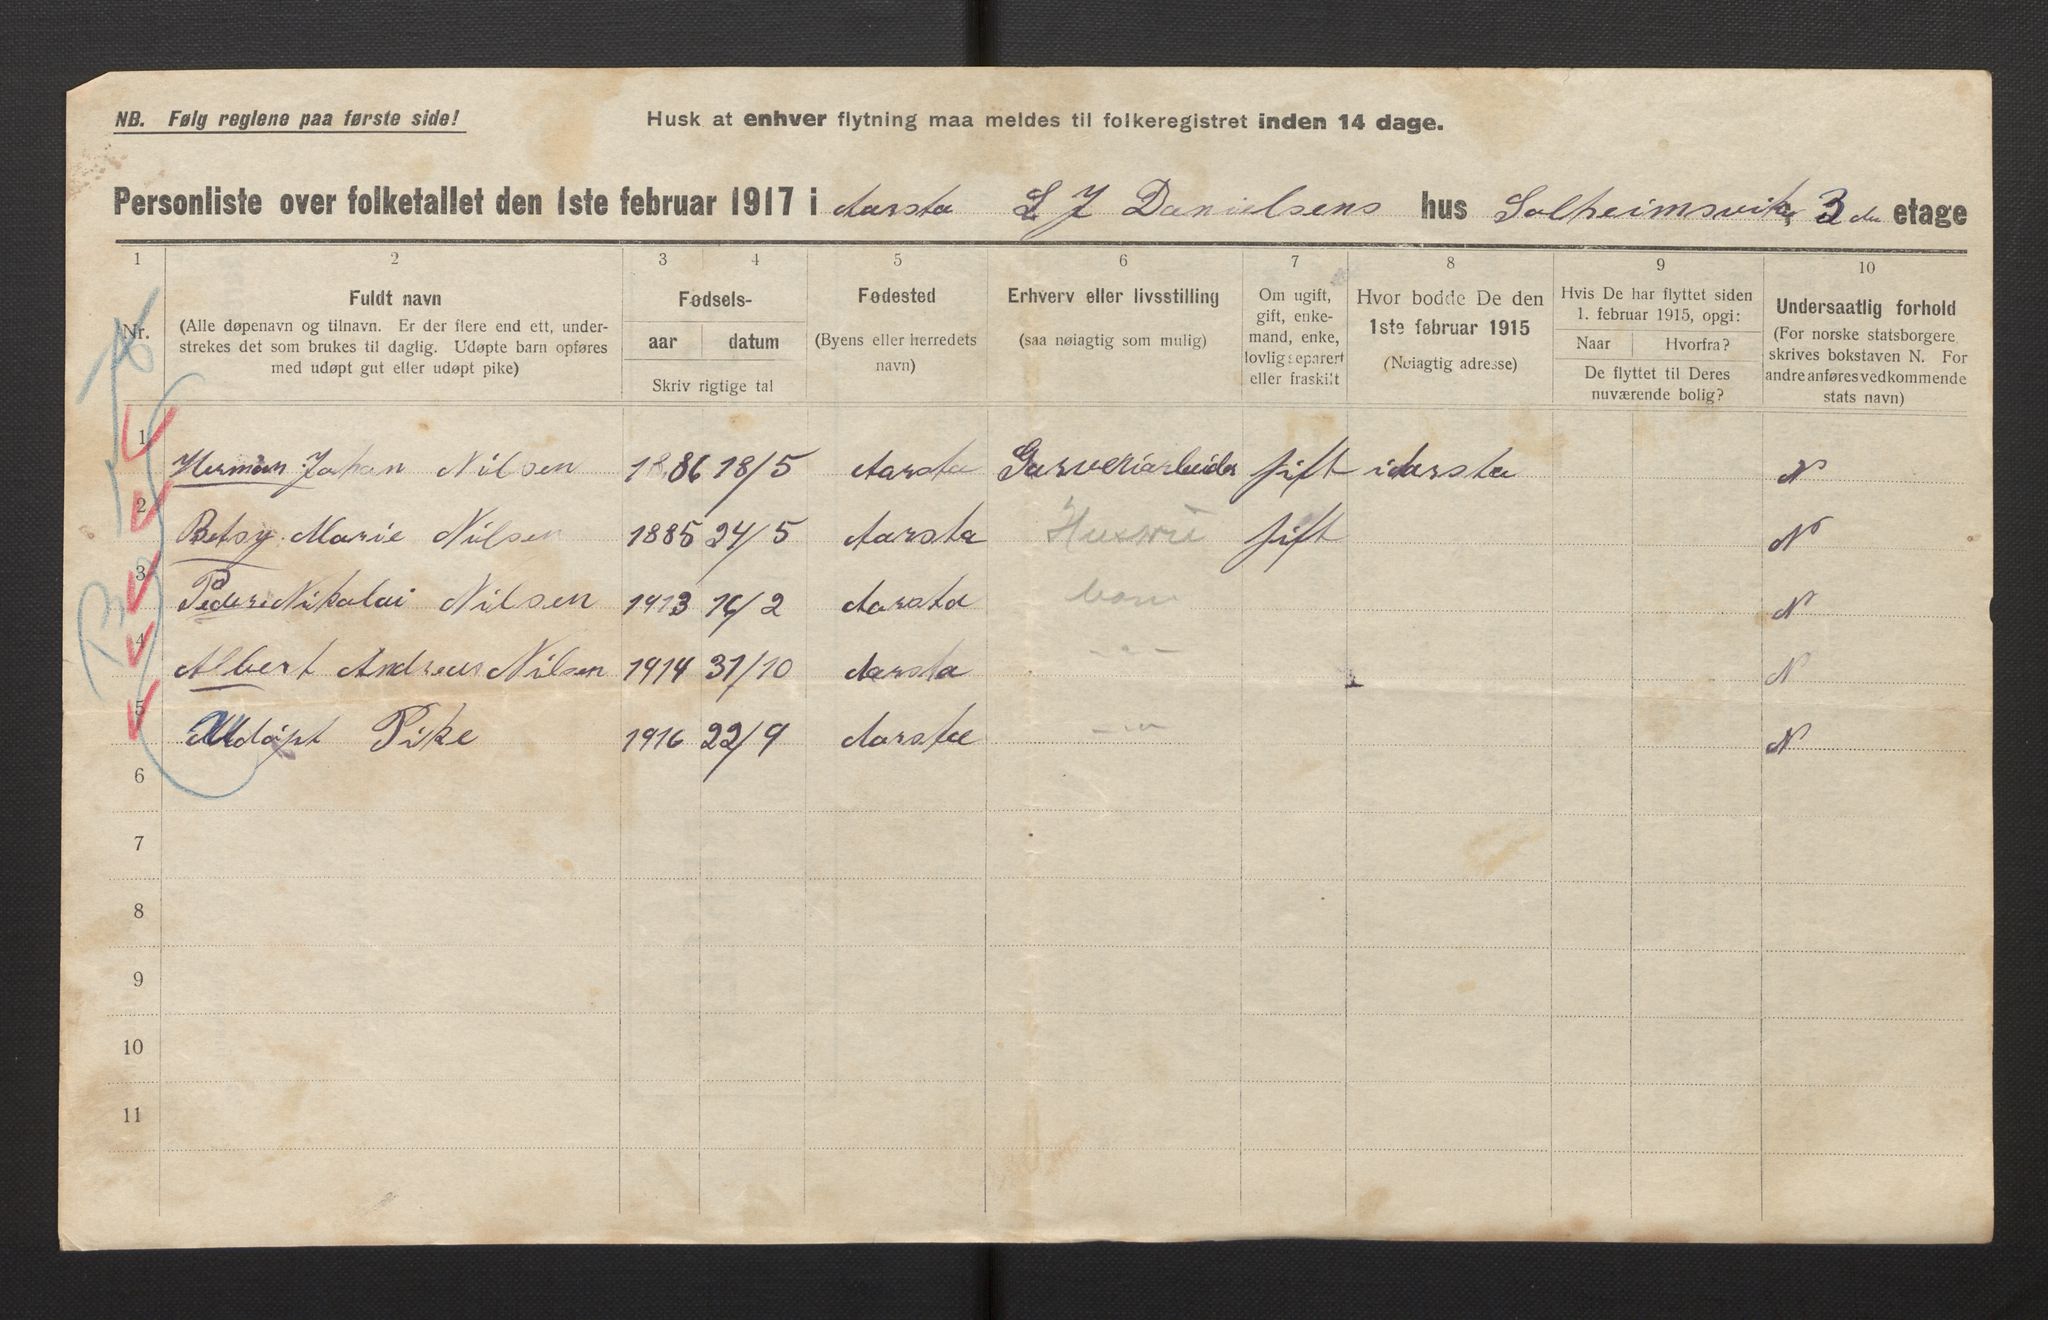 NB. Følg reglene paa første side!
Husk at enhver flytning maa meldes til folkeregistret inden 14 dage.
Personliste over folketallet den 1ste februar 1917 i Aarsta L J Danielsens hus Solheimsvik, 3 die etage
1 2 3 4 5 6 7 8 9 10
Nr.
Fuldt navn
(Alle døpenavn og tilnavn. Er der flere end ett, under-
strekes det som brukes til daglig. Udøpte barn opføres
med udøpt gut eller udøpt pike)
Fødsels-
aar datum
Skriv rigtige tal
Fødested
(Byens eller herredets
navn)
Erhverv eller livsstilling
(saa nøiagtig som mulig)
Om ugift,
gift, enke-
mand, enke,
lovlig separert
eller fraskilt
Hvor bodde De den
1ste februar 1915
(Nøiagtig adresse)
Hvis De har flyttet siden
1. februar 1915, opgi:
Naar Hvorfra?
De flyttet til Deres
nuværende bolig?
Undersaatlig forhold
(For norske statsborgere
skrives bokstaven N. For
andre anføres vedkommende
stats navn)
1 Herman Johan Nilsen 1886 18/5 Aarsta Garveriarbeider gift i Aarsta N
2 Betsy Marie Nilsen 1885 24/5 Aarsta Hustru gift N
3 Peder Nikolai Nilsen 1913 16/2 Aarsta barn N
4 Albert Andreas Nilsen 1914 31/10 Aarsta -"- N
5 Udøpt Pike 1916 22/9 Aarsta -"- N
6
7
8
9
10
11